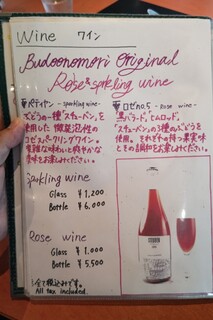 Wine ワイン
Budoonomori Original
Rosé & sparkling wine
ペティヤン - sparkling wine -
ぶどうの一種"スチューベン"を
使用した 微発泡性の
ロゼスパークリングワイン。
味わいと爽やかな
お楽しみください。
ロゼ no.5 - Rose wine -
黒バラード、ヒムロッド、
スチューベンの3種のぶどうを
使用。それぞれの持つ果実味
とその調和をお楽しみください。
Sparkling wine
Glass ¥1,200
Bottle ¥6,000
Rose wine
Glass ¥1,000
Bottle ¥5,500
全て税込みです。
All tax included.